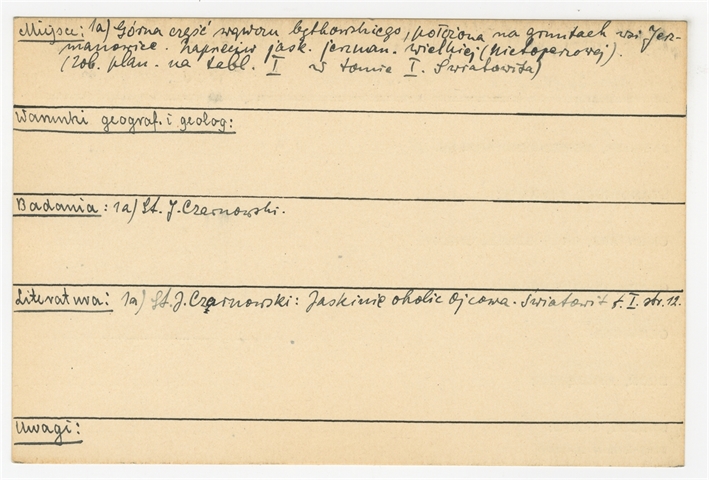 Miejsce: 1a) Górna część wąwozu będkowskiego, położona na gruntach wsi Jerz-
manowice. Naprzeciw jask. jerzman. wielkiej (Nietoperzowej).
(Zob. plan. na tabl. I w tomie I. Światowita)
Warunki geograf. i geolog:
Badania: 1a) St. J. Czarnowski.
Literatura: 1a) St. J. Czarnowski: Jaskinie okolic Ojcowa. Światowit t. I. str. 12.
Uwagi: